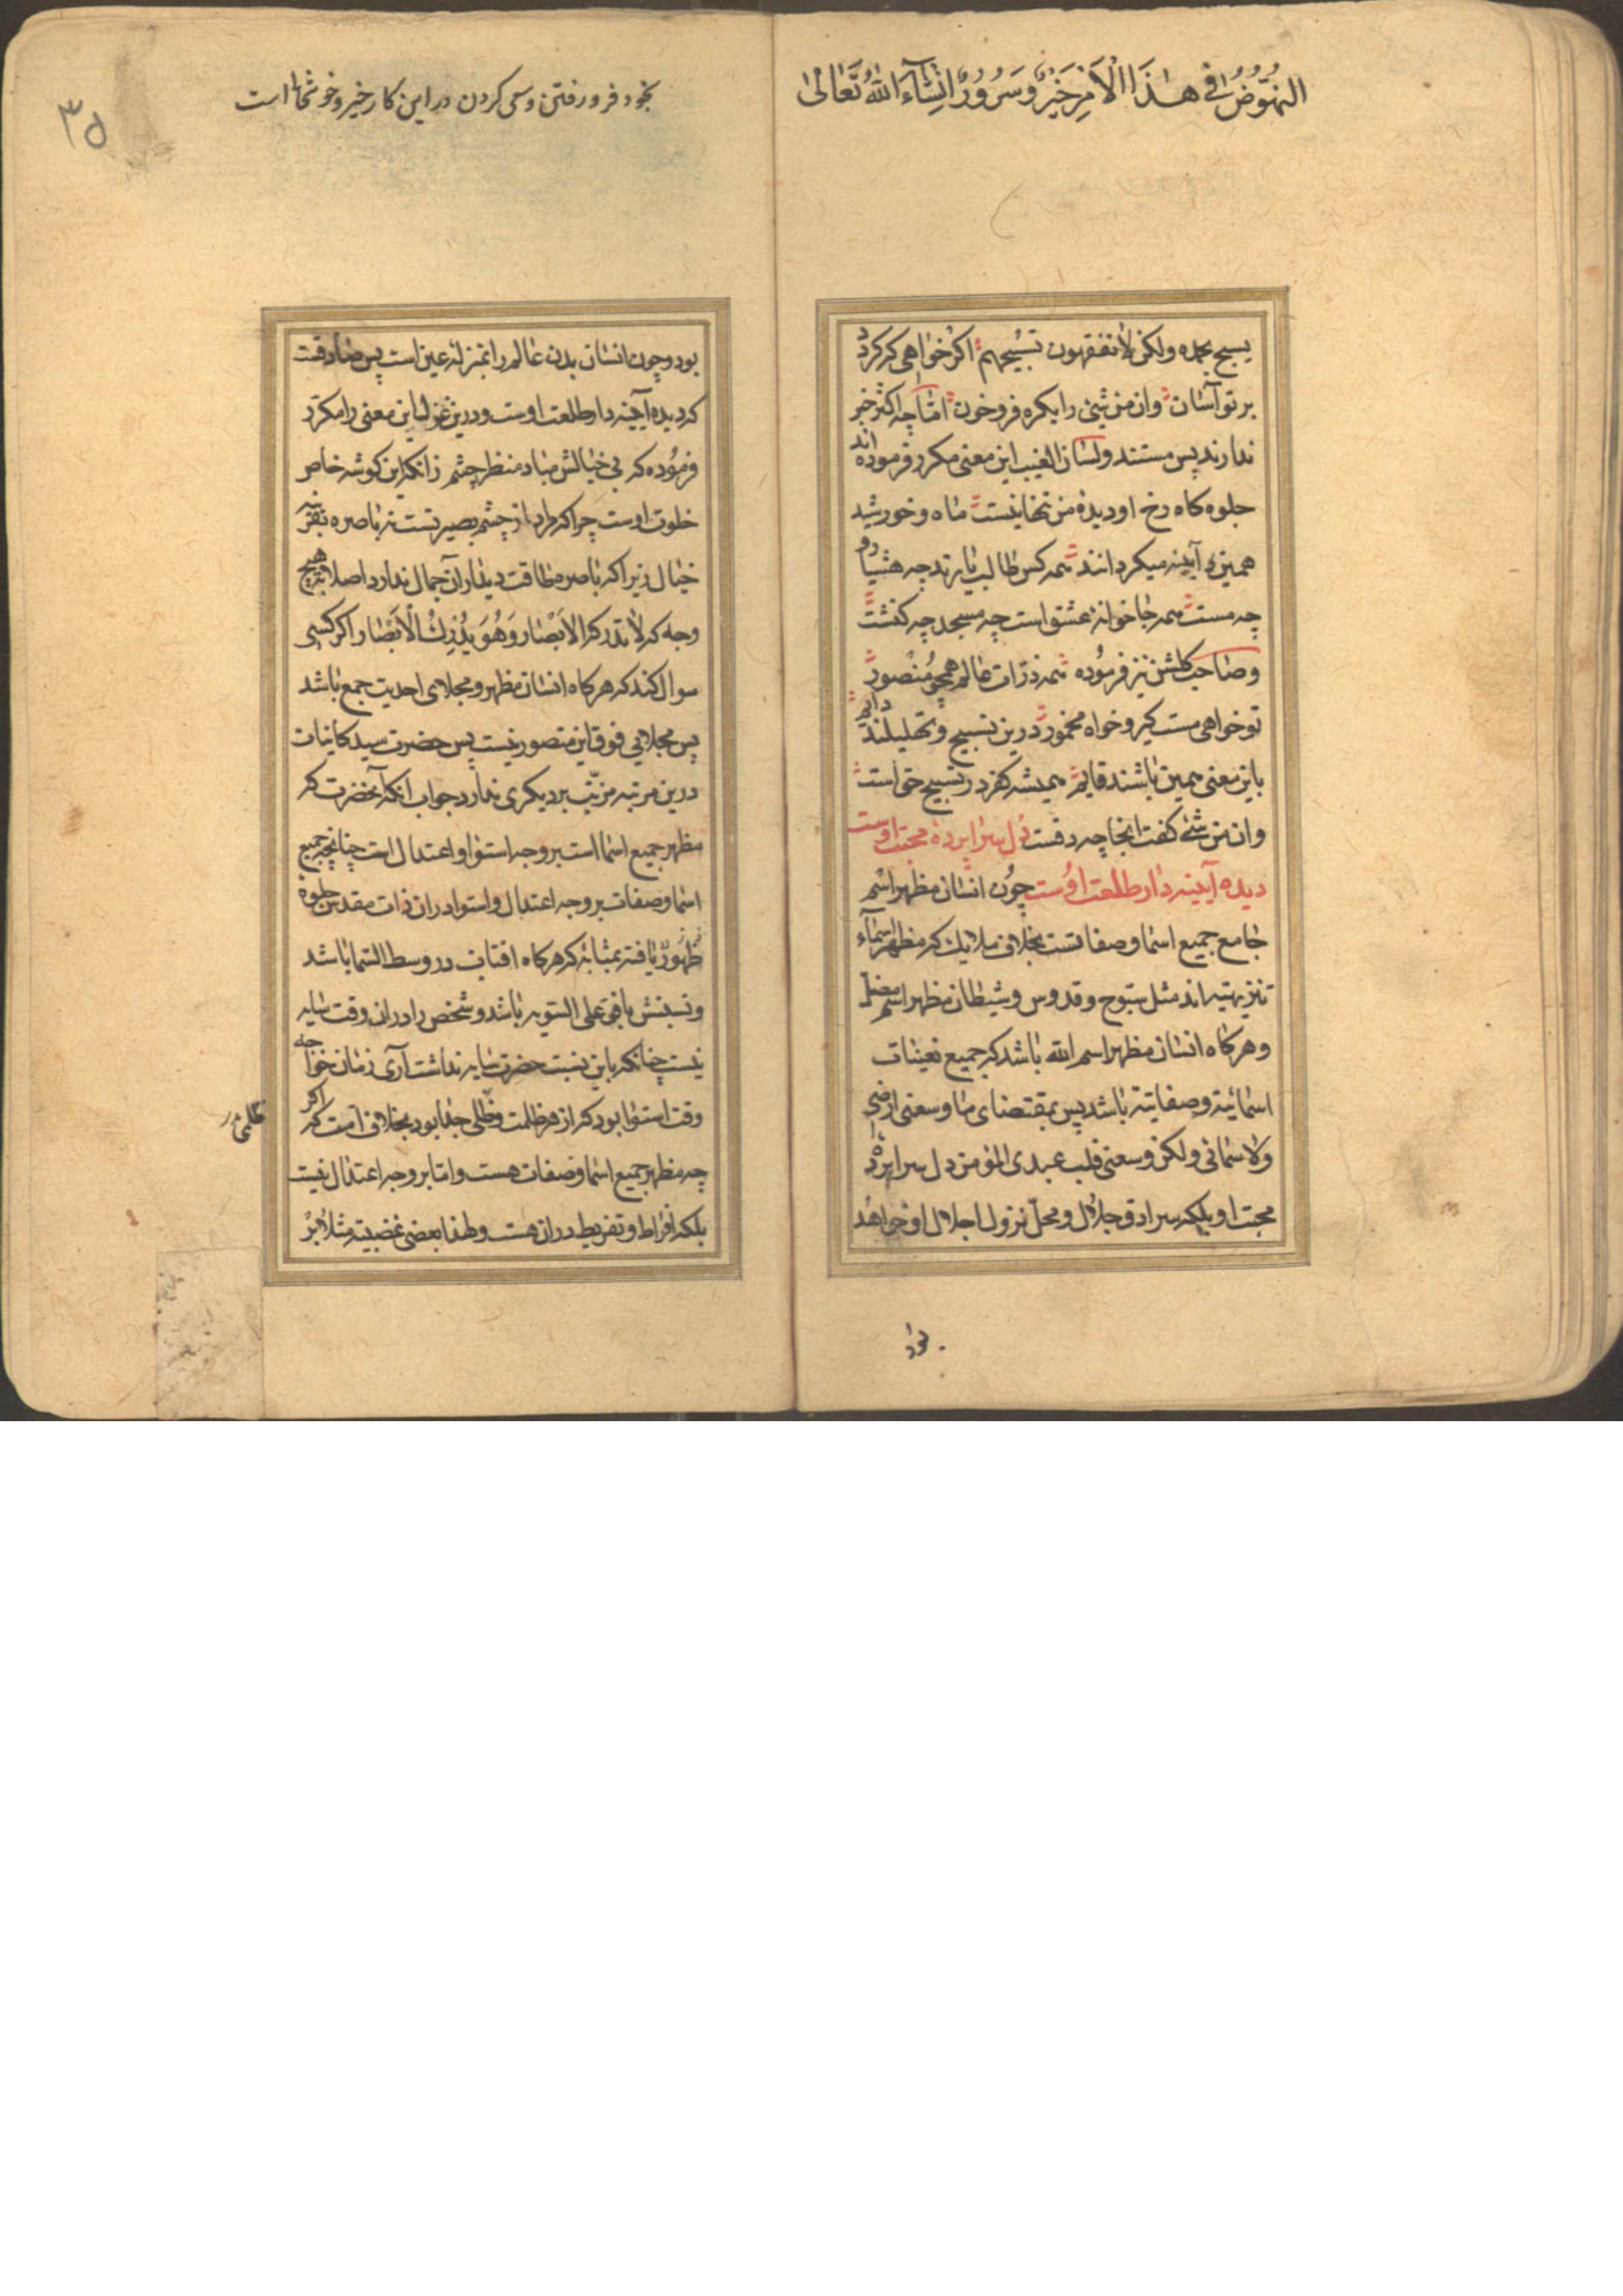 النهوض فی هذا الامر خیر و سرور انشاء الله تعالی
یسبح بحمده ولکن لا تفقهون تسبیحهم اکر خواهی که کردد
بر تو آسان وان من شیٔ را یکره فرو خوان اما چه اکثر خبر
ندارند پس مستند ولسان الغیب این معنی مکرر فرموده اند
جلوه کاه رخ او دیده من تنها نیست ماه و خورشید
همین آینه میکردانند همه کس طالب یارند چه هشیار و
چه مست همه جا خوانه عشق است چه مسجد چه کنشت
و صاحب کلشن نیز فرموده همه ذرات عالم همچو منصور
تو خواهی مست کیر و خواه مخمور درین تسبیح و تهلیلند دایم
باین معنی همین باشند قایم همیشه کفر در تسبیح حق است
وان من شئ کفت اینجا چه دقست دل سراپرده محبت اوست
دیده آیینه دار طلعت اوست چون انسان مظهر اسم
جامع جمیع اسما و صفاتست بخلاف ملایک که مظهر اسماء
تنزیهیه اند مثل سبوح و قدوس و شیطان مظهر اسم مضل
و هرکاه انسان مظهر اسم الله باشد که جمیع تعینات
اسمائیة و صفاتیة باشد پس بمقتضای ما وسعنی ارضی
ولا سمائی ولکن وسعنی قلب عبدی المؤمن دل سراپرده
محبت او بلکه سرادق جلال و محل نزول اجلال او خواهد
بود
بخود فرو رفتن و سعی کردن در این کار خیر و خوشحالها است
۳۵
بود و چون انسان بدن عالم را بمنزله عین است پس صادقست
که دیده آیینه دار طلعت اوست و درین غزل این معنی را مکرر
فرموده که بی خیالش مباد منظر چشم زانکه این کوشه خاص
خلوت اوست چرا که مراد از چشم بصیرتست نه باصره بقرینه
خیال زیرا که باصره طاقت دیدار آن جمال ندارد اصلا بهیچ
وجه که لا تدرکه الابصار وهو یدرک الابصار و اکر کسی
سوال کند که هرکاه انسان مظهر و مجلای احدیت جمع باشد
پس مجلایی فوق این متصور نیست پس حضرت سید کاینات
درین مرتبه مزیت بر دیکری ندارد جواب آنکه آنحضرت که
مظهر جمیع اسما است بر وجه استوا و اعتدال است چنانچه جمیع
اسما و صفات بر وجه اعتدال و استوا در ان ذات مقدس جلوة
ظهور یافته بمثابه که هرکاه افتاب در وسط السما باشد
و نسبتش بافق علی السویه باشد و شخص را در ان وقت سایه
نیست چنانکه باین نسبت حضرت سایه نداشت آری زمان خواجه
وقت استوا بود که از هر ظلمت و ظلی جدا بود بخلاف امت که اکر
چه مظهر جمیع اسما و صفات هست و اما بر وجه اعتدال نیست
بلکه افراط و تفریط در ان هست ولهذا بعضی غضبیه مثلا بر